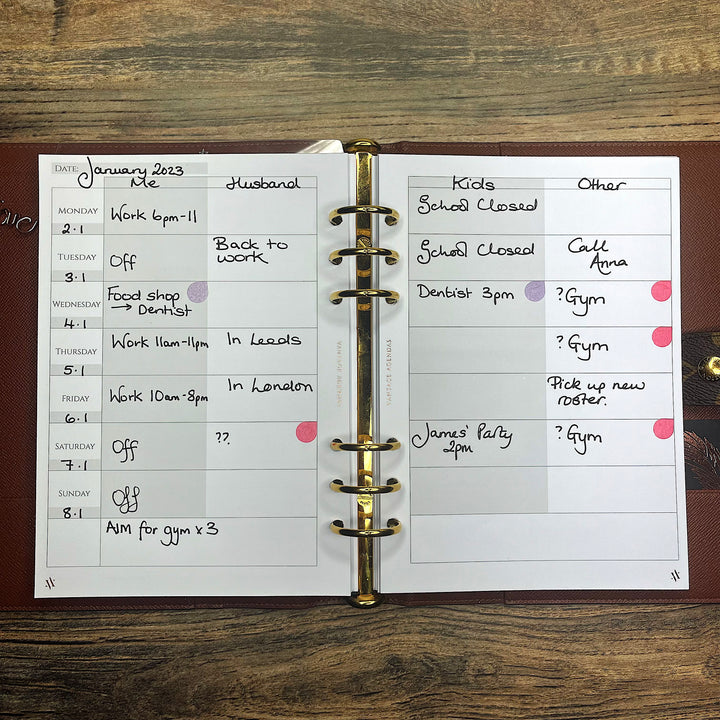 DATE: January 2023
Me Husband
MONDAY
2.1
Work 6pm-11
TUESDAY
3.1
Off
Back to
work
WEDNESDAY
4.1
Food shop
→ Dentist
THURSDAY
5.1
Work 11am-11pm
In Leeds
FRIDAY
6.1
Work 10am-8pm
In London
SATURDAY
7.1
Off
??
SUNDAY
8.1
Off
AIM for gym x 3
VANTAGE AGENDAS
Kids Other
School Closed
School Closed
Call
Anna
Dentist 3pm
? Gym
? Gym
Pick up new
roster.
James' Party
2pm
? Gym
VANTAGE AGENDAS